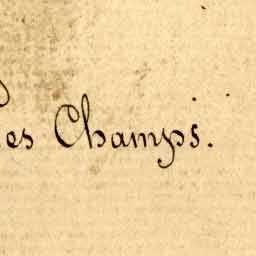 es Champs.